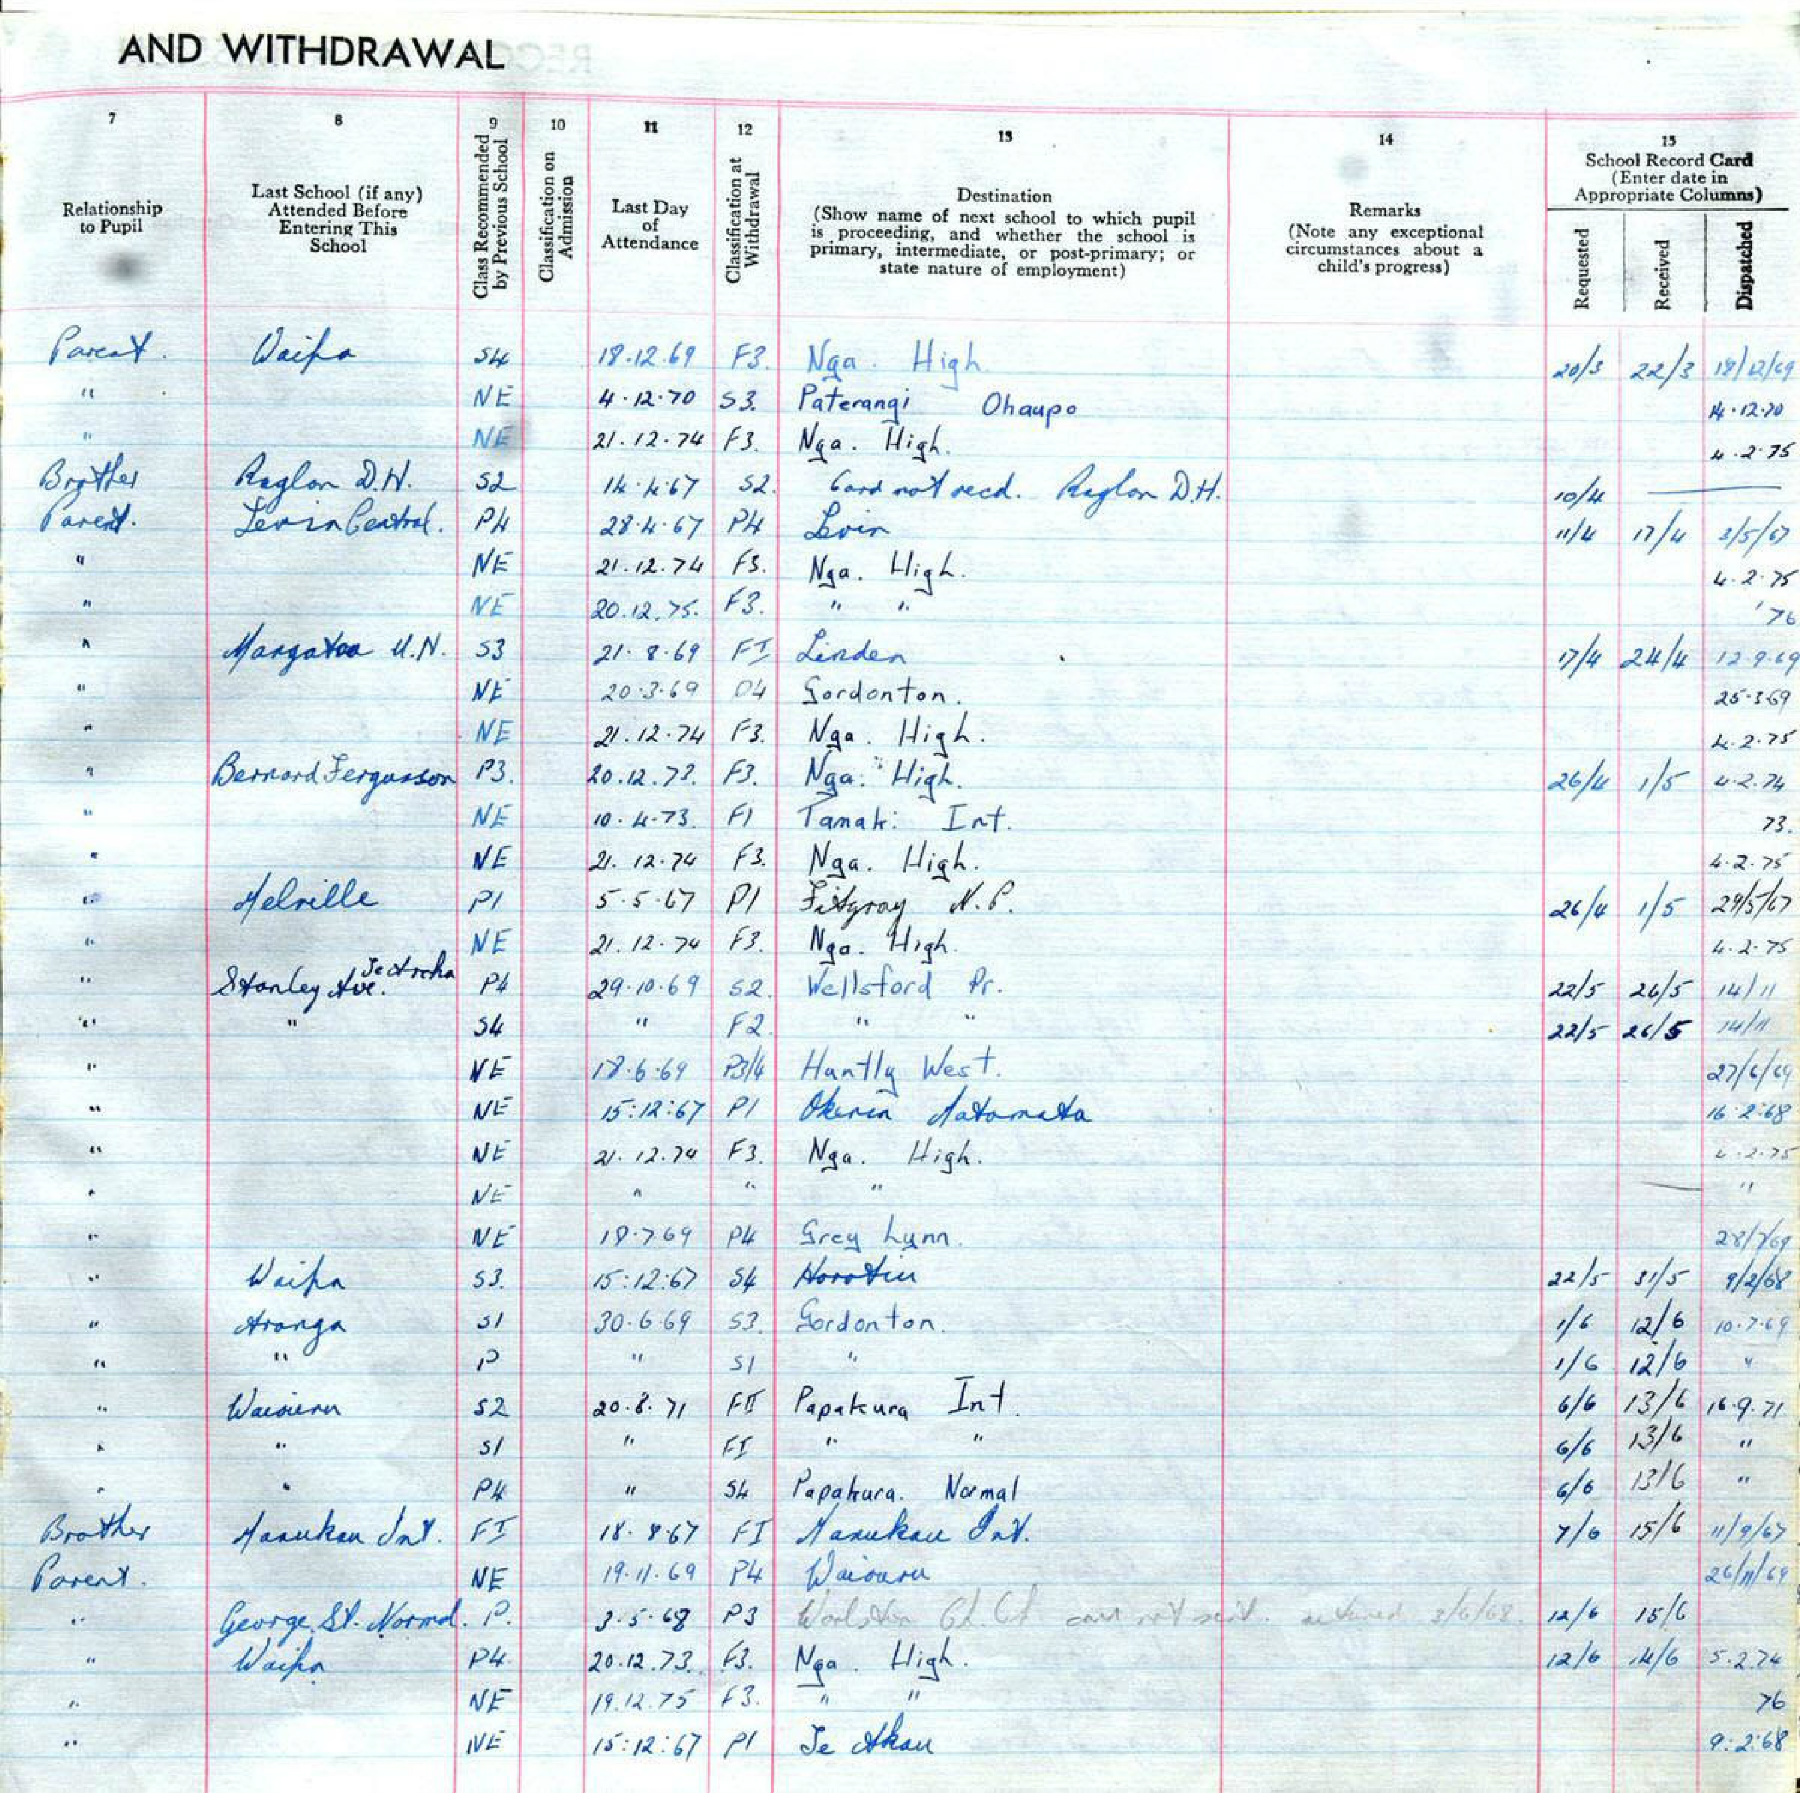 AND WITHDRAWAL
7 8 9 10 11 12 13 14 15
Relationship to Pupil
Last School (if any) Attended Before Entering This School
Class Recommended by Previous School
Classification on Admission
Last Day of Attendance
Classification at Withdrawal
Destination
(Show name of next school to which pupil is proceeding, and whether the school is primary, intermediate, or post-primary; or state nature of employment)
Remarks
(Note any exceptional circumstances about a child's progress)
School Record Card
(Enter date in Appropriate Columns)
Requested Received Dispatched
Parent. Waipa S4 18.12.69 F3. Nga. High 20/3 22/3 18/12/69
" NE 4.12.70 S3. Paterangi Ohaupo 14.12.70
" NE 21.12.74 F3. Nga. High. 4.2.75
Brother Raglan D.H. S2 14.4.67 S2. Card not recd. Raglan D.H. 10/4
Parent. Levin Central. P4 28.4.67 P4 Levin 11/4 17/4 3/5/67
" NE 21.12.74 F3. Nga. High. 4.2.75
" NE 20.12.75. F3. " " '76
" U.N. S3 21.8.69 FI Linden 17/4 24/4 12.9.69
" NE 20.3.69 P4 Gordonton. 25.3.69
" NE 21.12.74 F3. Nga. High. 4.2.75
" Bernard Fergusson P3. 20.12.73. F3. Nga. High. 26/4 1/5 4.2.74
" NE 10.4.73. F1 Tamaki Int. 73.
" NE 21.12.74 F3. Nga. High. 4.2.75
" Melville P1 5.5.67 P1 N.P. 26/4 1/5 29/5/67
" NE 21.12.74 F3. Nga. High. 4.2.75
" Stanley Ave. Te Aroha P4 29.10.69 S2. Wellsford Pr. 22/5 26/5 14/11
" " S4 " F2. " " 22/5 26/5 14/11
" NE 18.6.69 P3/4 Huntly West. 27/6/69
" NE 15:12:67 P1 Matamata 16:2:68
" NE 21.12.74 F3. Nga. High. 4.2.75
" NE " " " "
" NE 18.7.69 P4 Grey Lynn. 28/7/69
" Waipa S3. 15:12:67 S4 Horotiu 22/5 31/5 9/2/68
" Aranga S1 30.6.69 S3. Gordonton. 1/6 12/6 10.7.69
" " P " S1 " 1/6 12/6 "
" Waiouru S2 20.8.71 FII Papakura Int. 6/6 13/6 16.9.71
" " S1 " FI " " 6/6 13/6 "
" " P4 " S4 Papakura. Normal 6/6 13/6 "
Brother Manukau Int. FI 18.8.67 FI Manukau Int. 7/6 15/6 11/9/67
Parent. NE 19.11.69 P4 Waiouru 26/11/69
" George St. Normal. P. 3.5.68 P3 card not sent. 3/6/68. 12/6 15/6
" Waipa P4 20.12.73. F3. Nga. High. 12/6 14/6 5.2.74
" NE 19.12.75 F3. " " 76
" NE 15:12:67 P1 Te Akau 9:2:68